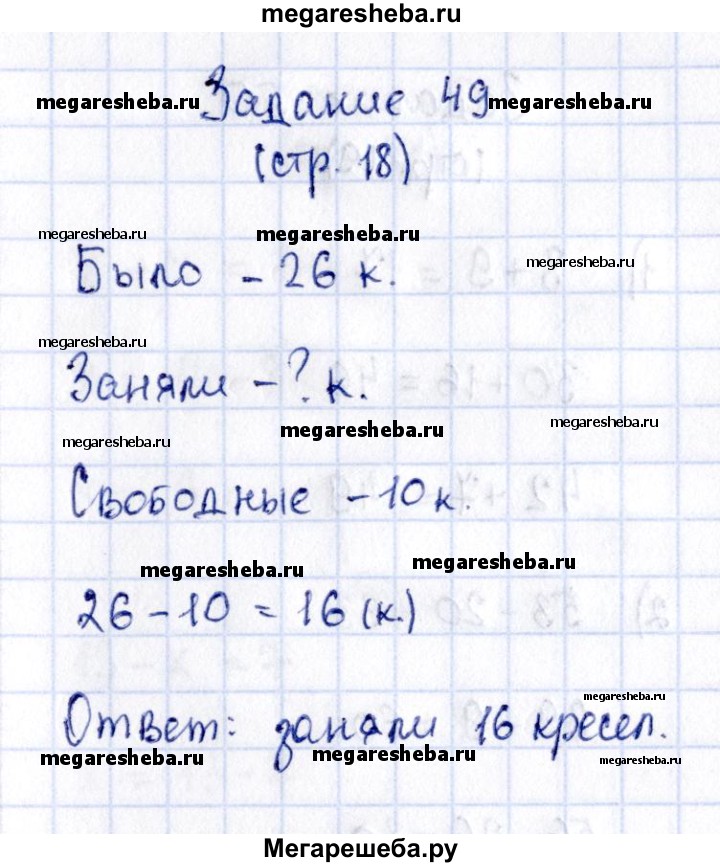 megaresheba.ru
Задание 49
megaresheba.ru megaresheba.ru
(стр. 18)
megaresheba.ru megaresheba.ru
Было - 26 к.
megaresheba.ru
megaresheba.ru
Заняли - ? к.
megaresheba.ru
megaresheba.ru
megaresheba.ru
Свободные - 10 к.
megaresheba.ru
megaresheba.ru
26 - 10 = 16 (к.)
megaresheba.ru
Ответ: заняли 16 кресел.
megaresheba.ru megaresheba.ru megaresheba.ru
Мегарешеба.ру